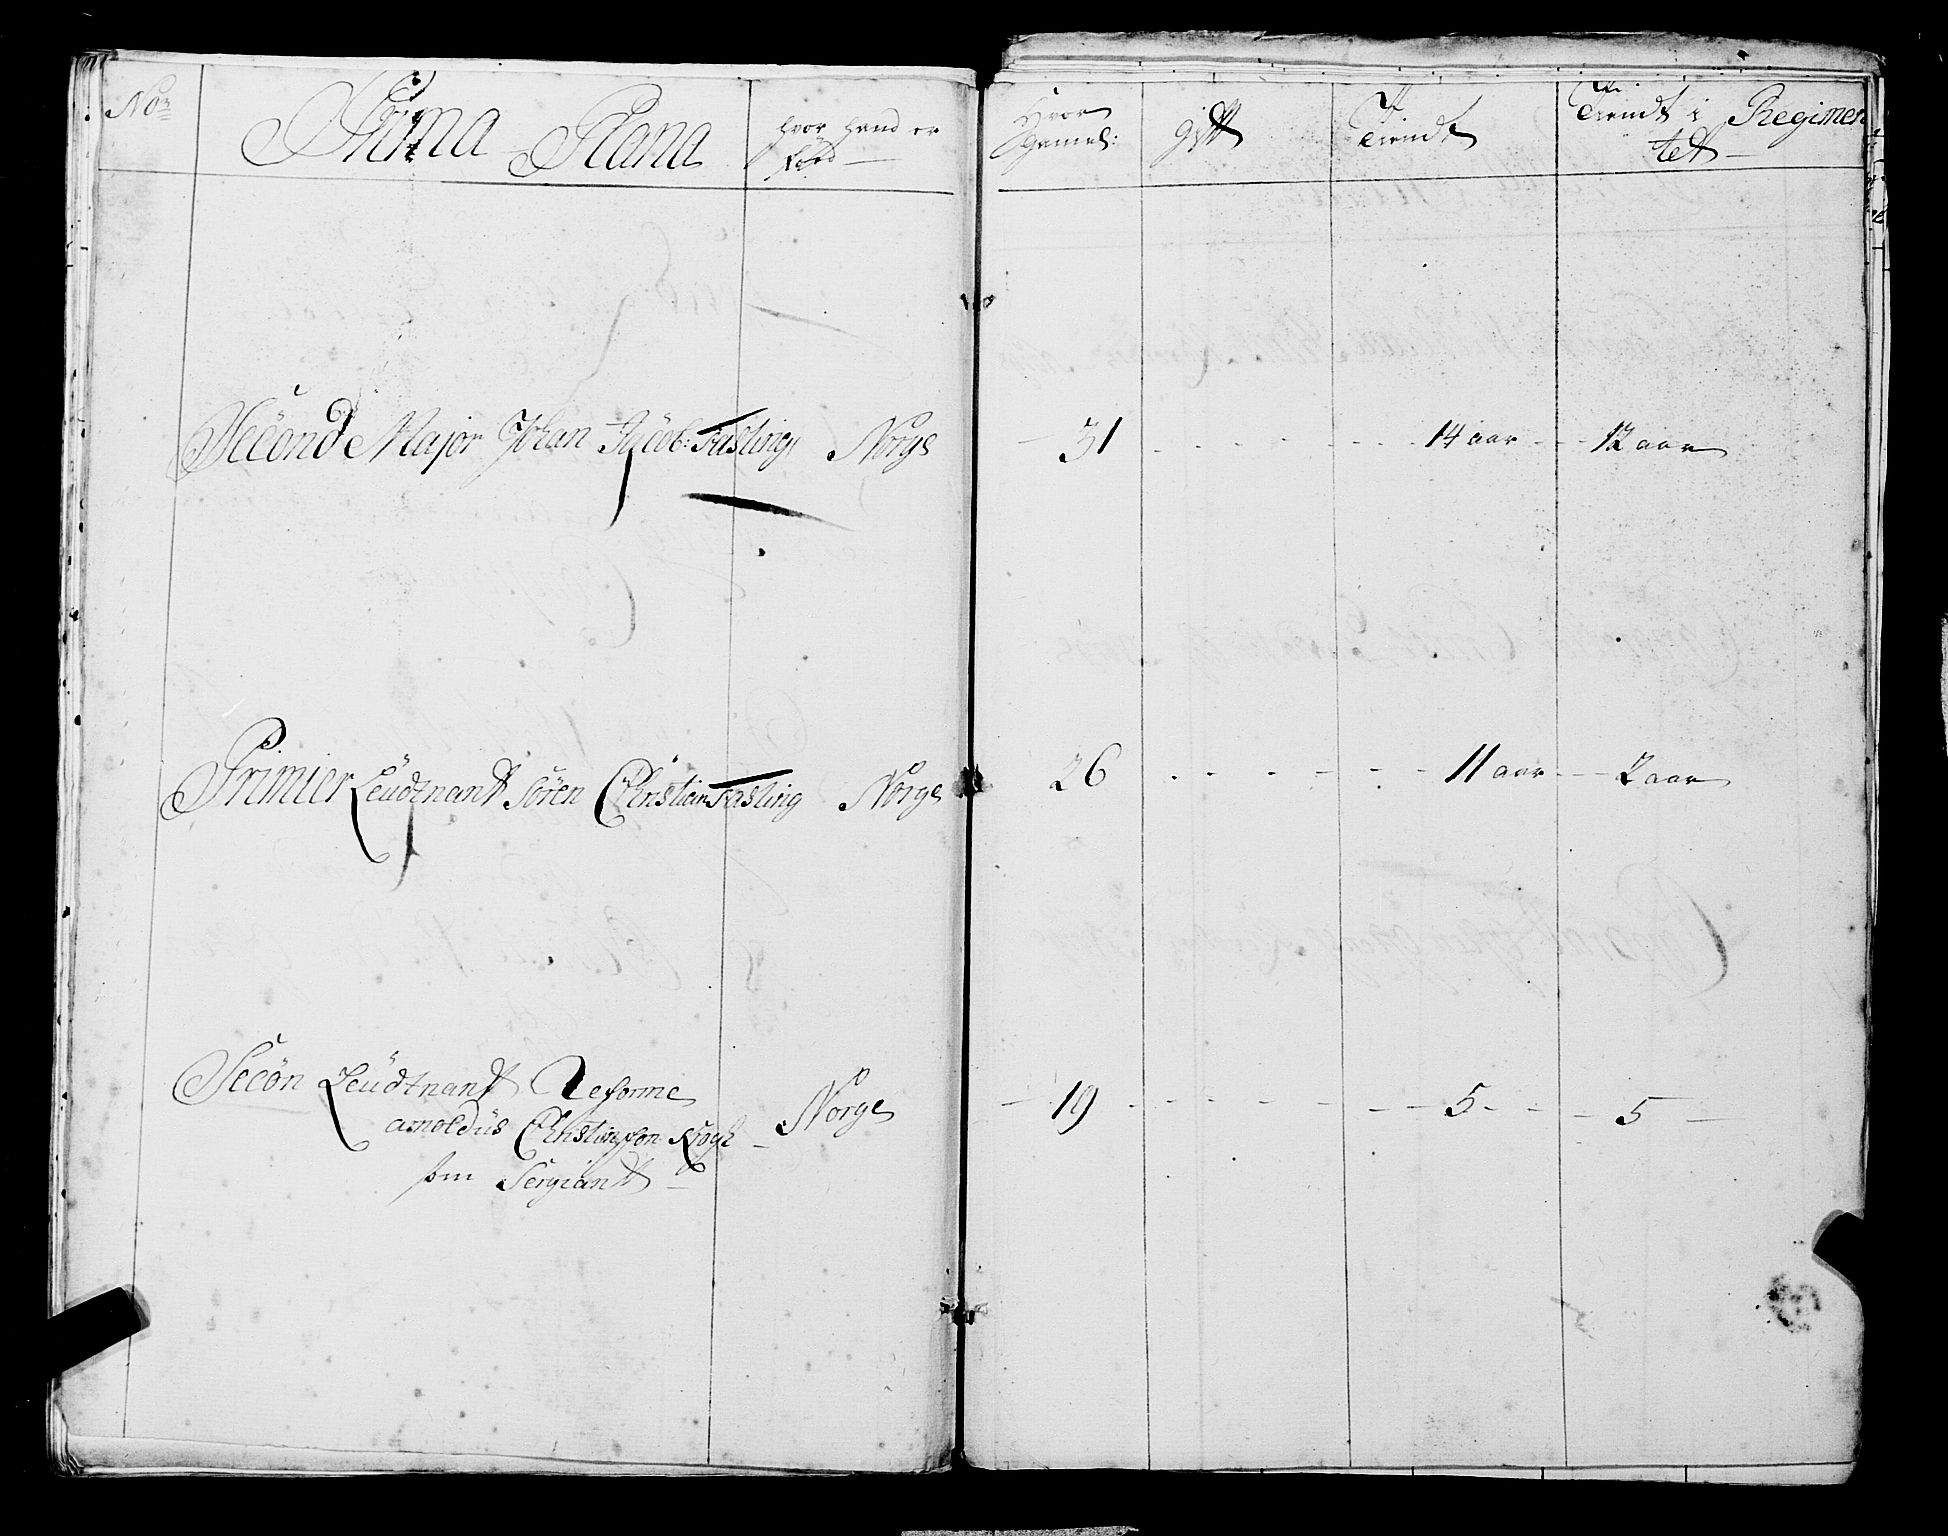 No
Prima Plana
hvor hand er
Hvor
gamel:
gift
Tiendt
Tiendt i Regimen
tet
Second Major Johan Jacob: Fasting Norge 31 14 aar 12 aar
Primier Leudtnandt Sören Christian Fasting Norge 26 11 aar 2 aar
Secön Leudtnandt Reforme
arnoldüs Christiansson Krogh Norge 19 5 5
som Sergiandt